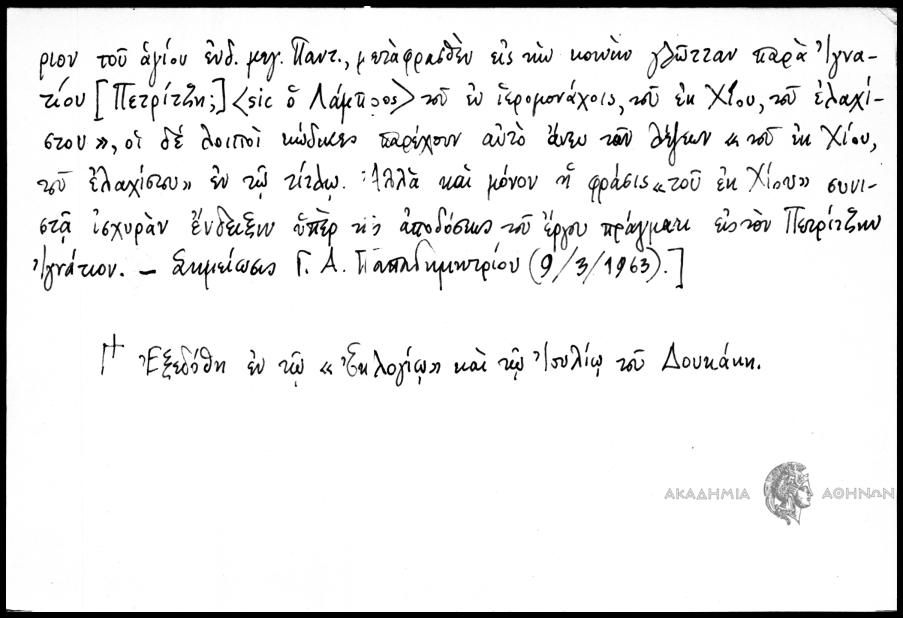 ριον τοῦ ἁγίου ἐνδ. μεγ. Παντ., μεταφρασθὲν εἰς τὴν κοινὴν γλῶτταν παρὰ Ἰγνα-
τίου [Πετρίτζη;] <sic ὁ Λάμπρος> τοῦ ἐν ἱερομονάχοις, τοῦ ἐκ Χίου, τοῦ ἐλαχί-
στου», οἱ δὲ λοιποὶ κώδικες παρέχουν αὐτὸ ἄνευ τῶν λέξεων «τοῦ ἐκ Χίου,
τοῦ ἐλαχίστου» ἐν τῷ τίτλῳ. Ἀλλὰ καὶ μόνον ἡ φράσις «τοῦ ἐκ Χίου» συνι-
στᾷ ἰσχυρὰν ἔνδειξιν ὑπὲρ τῆς ἀποδόσεως τοῦ ἔργου πράγματι εἰς τὸν Πετρίτζην
Ἰγνάτιον. — Σημείωσις Γ. Α. Παπαδημητρίου (9/3/1963).]
Ἐξεδόθη ἐν τῷ «Ἐκλογίῳ» καὶ τῷ Ἰουλίῳ τοῦ Δουκάκη.
ΑΚΑΔΗΜΙΑ ΑΘΗΝΩΝ